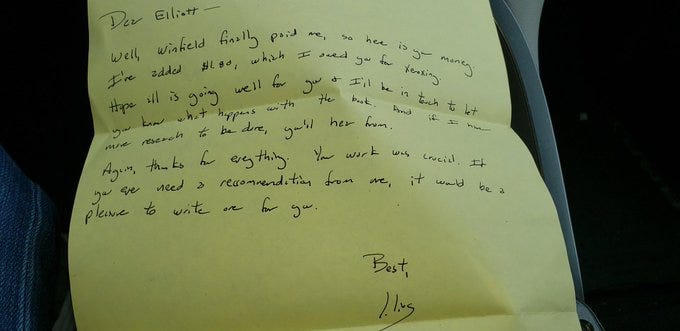 Dear Elliott —
Well, Winfield finally paid me, so here is your money.
I've added $1.80, which I owed you for xeroxing.
Hope all is going well for you & I'll be in touch to let
you know what happens with the book. And if I have
more research to be done, you'll hear from.
Again, thanks for everything. Your work was crucial. If
you ever need a recommendation from me, it would be a
pleasure to write one for you.
Best,